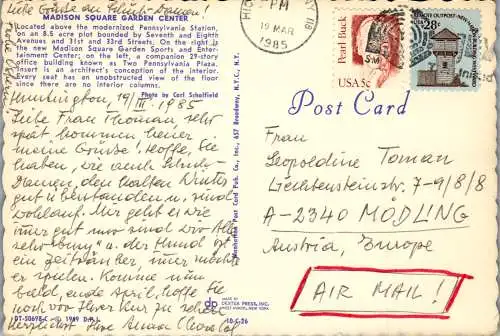 Liebe Grüße an
MADISON SQUARE GARDEN CENTER
Located above the modernized Pennsylvania Station,
on an 8.5 acre plot bounded by Seventh and Eighth
Avenues and 31st and 33rd Streets. On the right is
the new Madison Square Garden Sports and Enter-
tainment Center; on the left, a companion 29-story
office building known as Two Pennsylvania Plaza.
Insert is an architect's conception of the interior.
Every seat has an unobstructed view of the floor
since there are no interior columns.
Photo by Carl Scholfield
Huntington, 19/III 1985
Liebe Frau Thoman, sehr
spät kommen heuer
meine Grüße! Hoffe, Sie
haben, wie auch
Damen, den kalten Winter
gut überstanden u. sind
wohlauf. Mir geht es wie
immer gut nur sind wir alle
sehr "busy" u. der Hund ist
ein zeitraubender
Komme nun
bald, ende April, hoffe Sie
noch vor Ihrer Kur zu sehen.
herzlichst Ihre
DT-50698-C © 1969 D.P.I.
Manhattan Post Card Pub. Co., Inc., 657 Broadway, N.Y.C., N.Y.
dp
MADE BY
DEXTER PRESS, INC.
10-C-26
PM
19 MAR
1985
Pearl Buck
USA 5c
USA
28c
Post Card
Frau
Leopoldine Toman
Liechtensteinstr. 7-9/8/8
A-2340 MÖDLING
Austria, Europe
AIR MAIL!